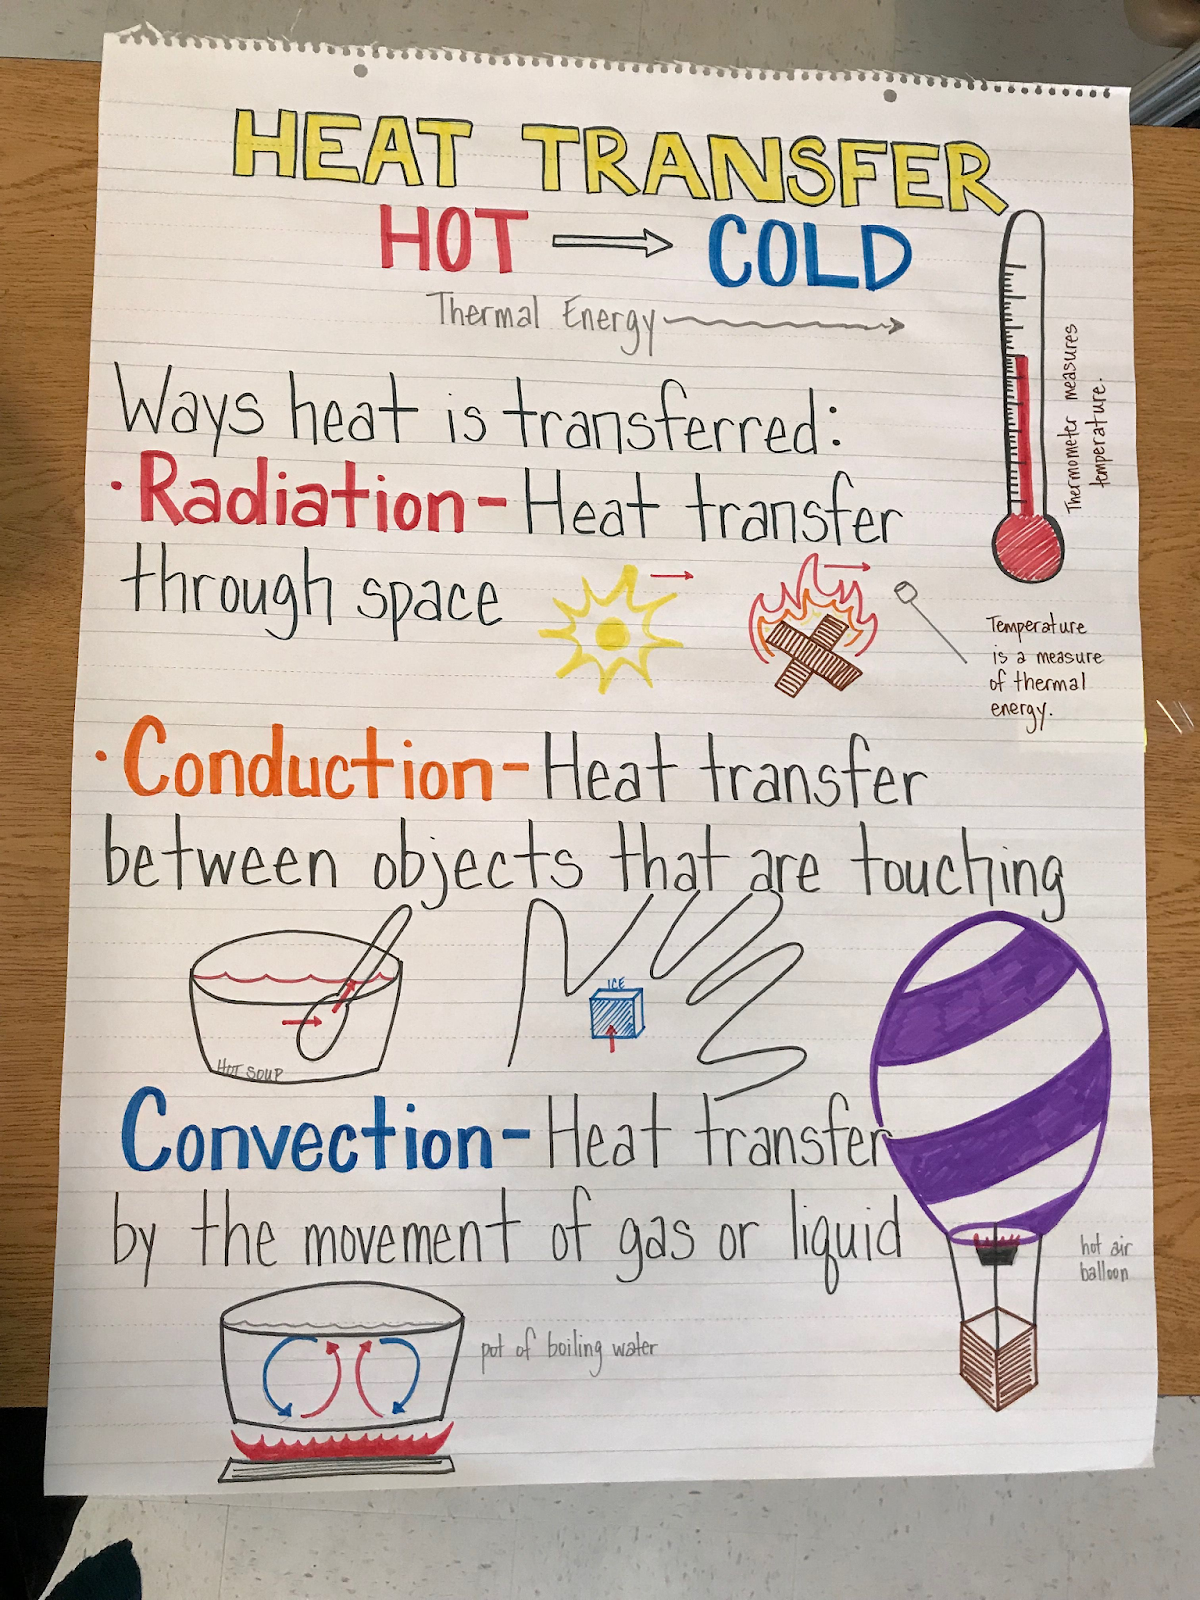 HEAT TRANSFER
HOT → COLD
Thermal Energy
Thermometer measures
temperature.
Ways heat is transferred:
· Radiation - Heat transfer
through space
Temperature
is a measure
of thermal
energy.
· Conduction - Heat transfer
between objects that are touching
ICE
HOT SOUP
Convection - Heat transfer
by the movement of gas or liquid
hot air
balloon
pot of boiling water